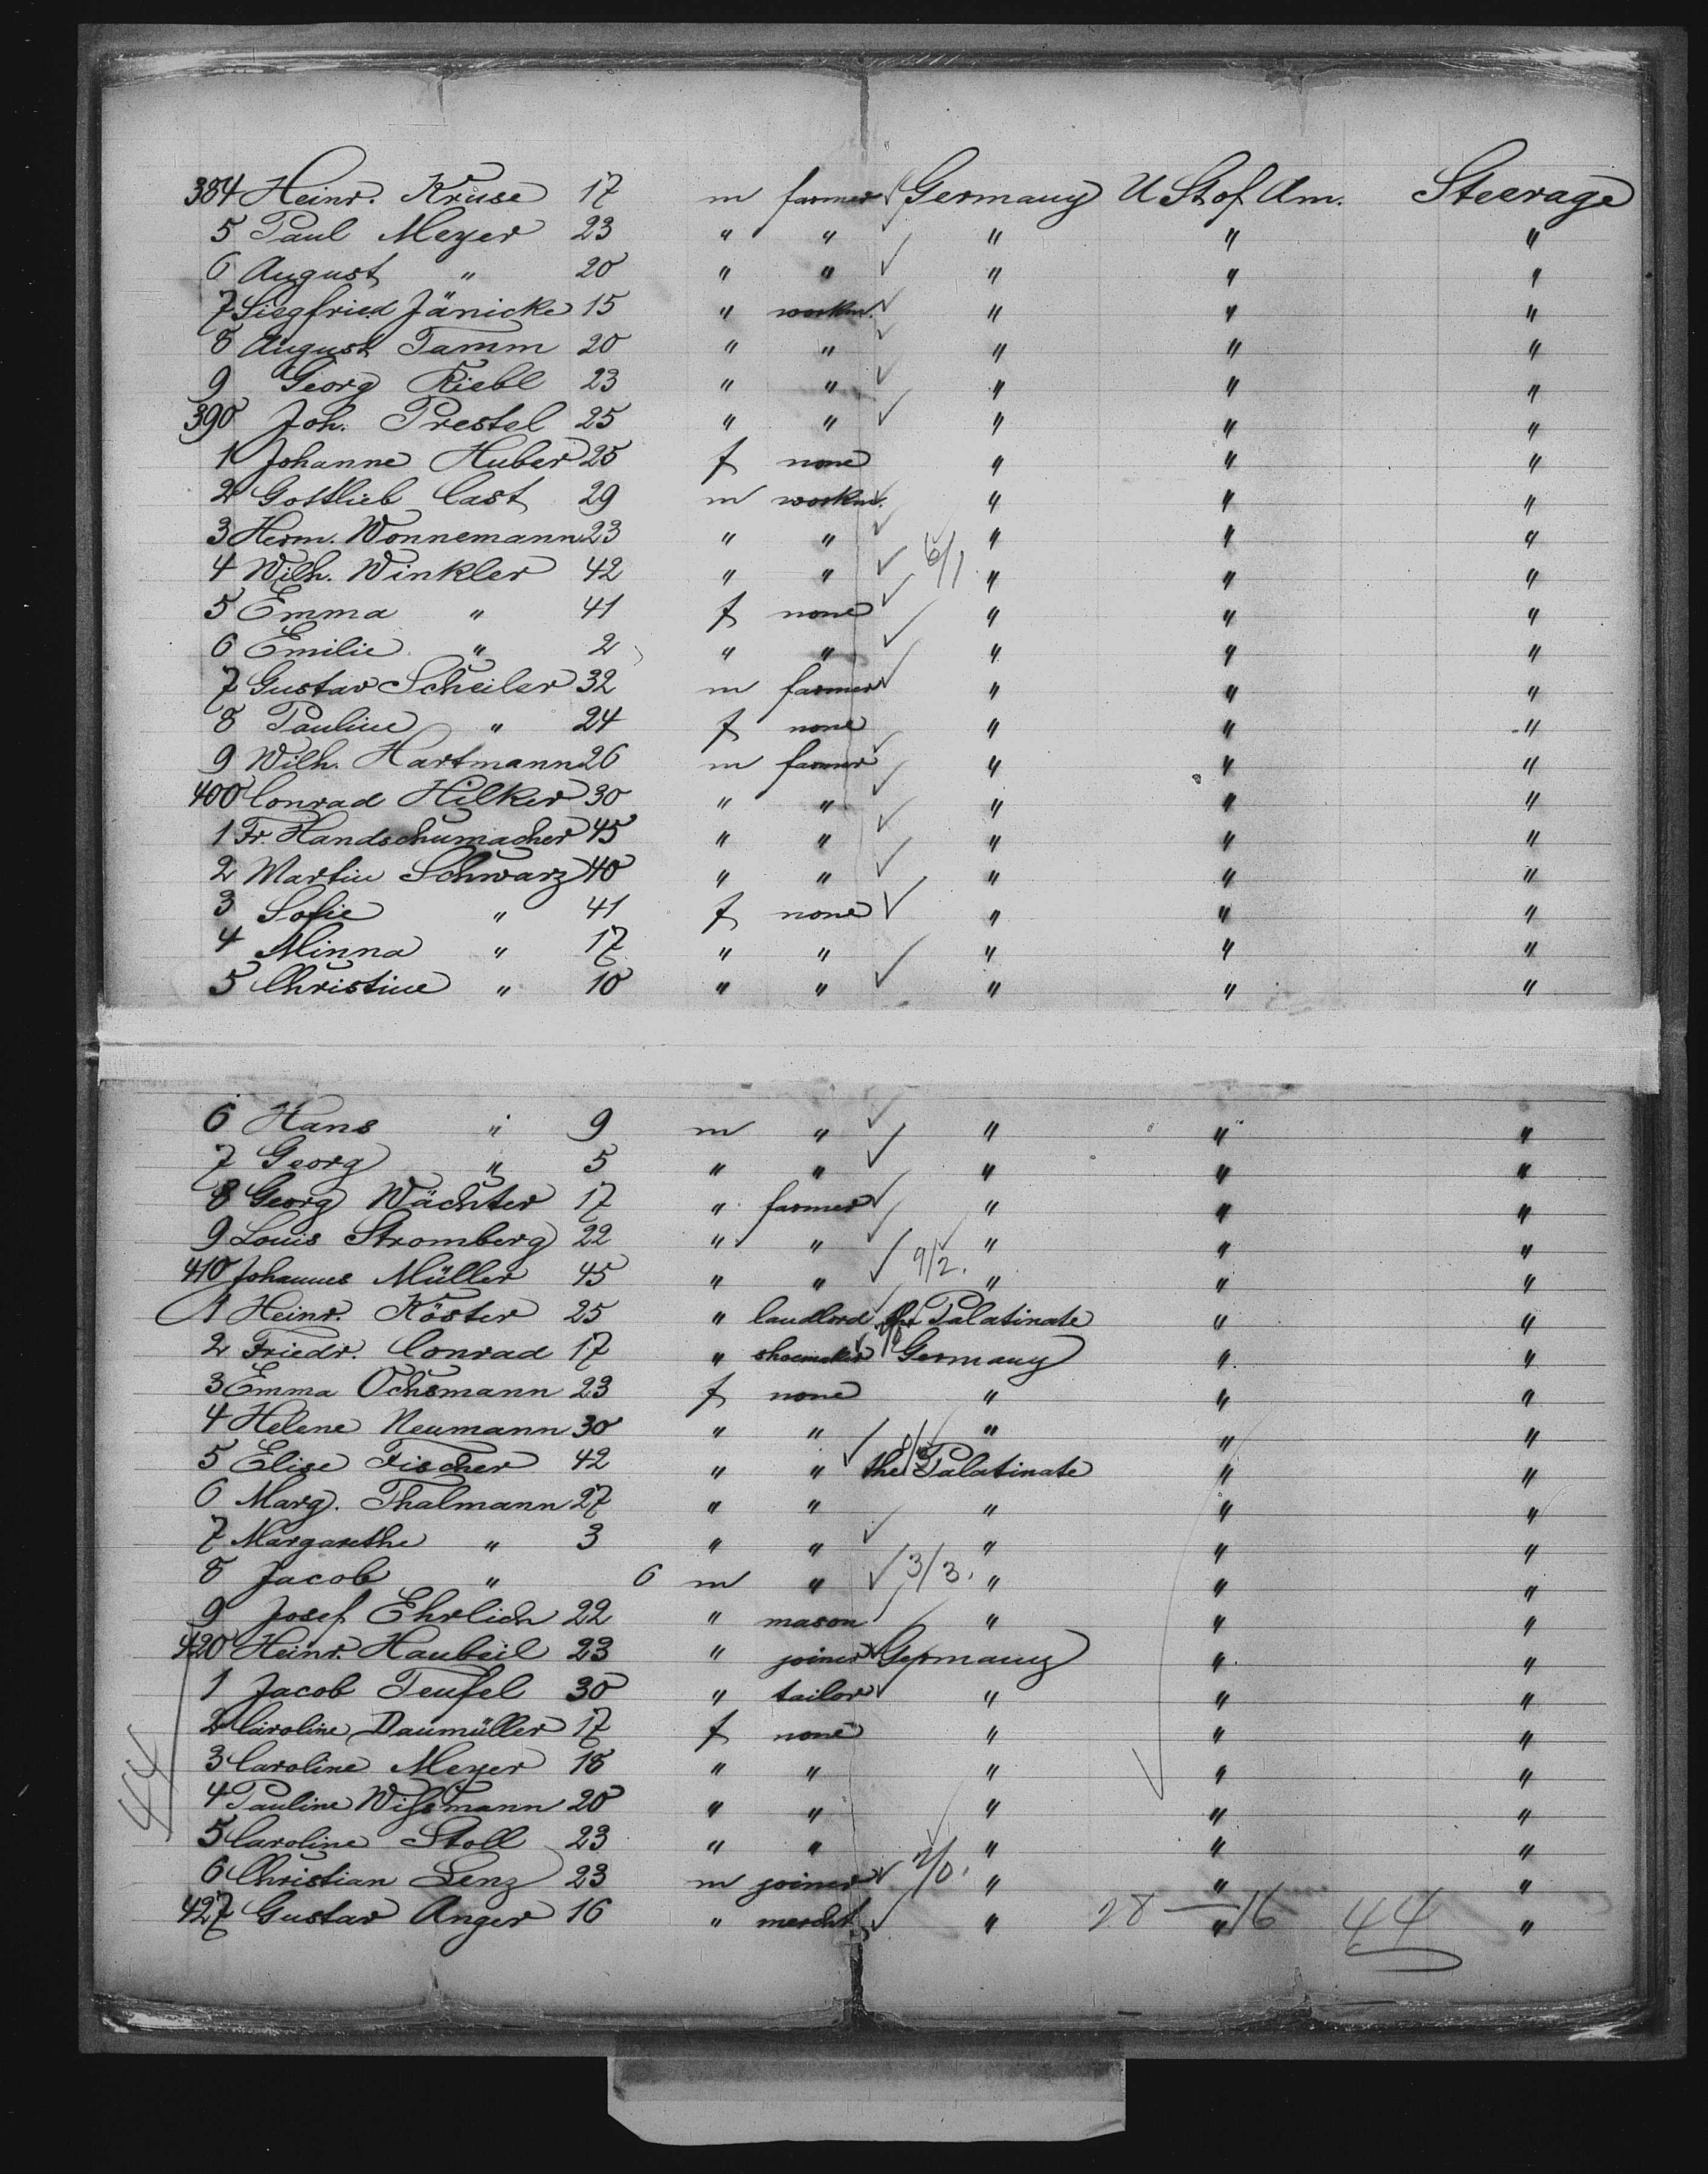 384 Heinr. Kruse 17 m farmer Germany U St of Am. Steerage
5 Paul Meyer 23 " " " " "
6 August " 20 " " " " "
7 Siegfried Jänicke 15 " workm. " " "
8 August Tamm 20 " " " " "
9 Georg Riebl 23 " " " " "
390 Joh. Prestel 25 " " " " "
1 Johanne Huber 25 f none " " "
2 Gottlieb Cast 29 m workm. " " "
3 Herm. Wonnemann 23 " " " " "
4 Wilh. Winkler 42 " " 6/1 " " "
5 Emma " 41 f none " " "
6 Emilie " 2 " " " " "
7 Gustav Scheiler 32 m farmer " " "
8 Pauline " 24 f none " " "
9 Wilh. Hartmann 26 m farmer " " "
400 Conrad Hilker 30 " " " " "
1 Fr. Handschumacher 45 " " " " "
2 Martin Schwarz 40 " " " " "
3 Sofie " 41 f none " " "
4 Minna " 17 " " " " "
5 Christine " 10 " " " " "
6 Hans " 9 m " " " "
7 Georg " 5 " " " " "
8 Georg Wächter 17 " farmer " " "
9 Louis Stromberg 22 " " " " "
410 Johannes Müller 45 " " 9/2. " " "
1 Heinr. Köster 25 " landlord the Palatinate " "
2 Friedr. Conrad 17 " shoemaker Germany " "
3 Emma Ochsmann 23 f none " " "
4 Helene Neumann 30 " " " " "
5 Elise Fischer 42 " " the Palatinate " "
6 Marg. Thalmann 27 " " " " "
7 Margarethe " 3 " " " " "
8 Jacob " 6 m " 3/3. " " "
9 Josef Ehrlich 22 " mason " " "
420 Heinr. Haubeil 23 " joiner Germany " "
1 Jacob Teufel 30 " tailor " " "
2 Caroline Daumüller 17 f none " " "
3 Caroline Meyer 18 " " " " "
4 Pauline Wißmann 20 " " " " "
44
5 Caroline Stoll 23 " " " " "
6 Christian Lenz 23 m joiner 2/0. " " "
427 Gustav Anger 16 " mercht " " "
28 — 16 44